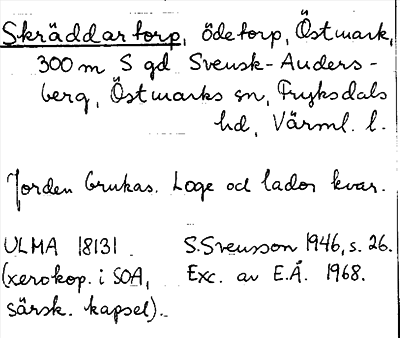 Skräddartorp, ödetorp, Östmark,
300 m S gd Svensk-Anders-
berg, Östmarks sn, Fryksdals
hd, Värml. l.
Jorden brukas. Loge och lador kvar.
ULMA 18131 S. Svensson 1946, s. 26.
(xerokop. i SOA, Exc. av E.Å. 1968.
särsk. kapsel).